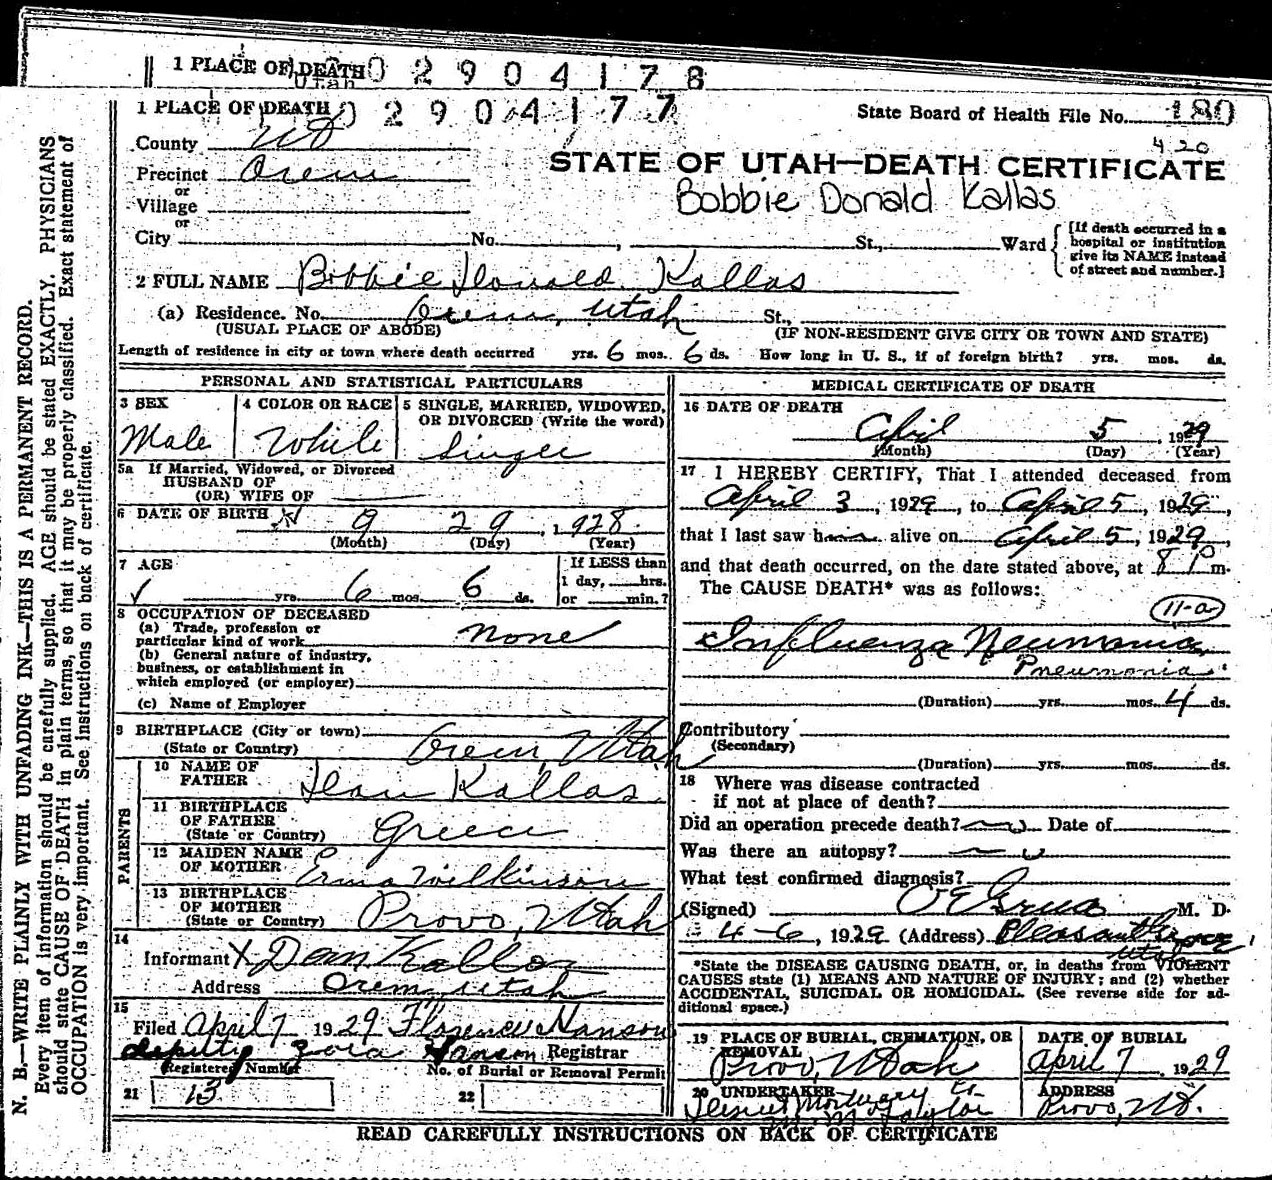 1 PLACE OF DEATH 0 2 9 0 4 1 7 8
Utah
1 PLACE OF DEATH 0 2 9 0 4 1 7 7
State Board of Health File No. 180
County Ut
420
STATE OF UTAH—DEATH CERTIFICATE
Precinct Orem
or
Bobbie Donald Kallas
Village
or
City No. , St., Ward
[If death occurred in a
hospital or institution
give its NAME instead
of street and number.]
2 FULL NAME Bobbie Donald Kallas
(a) Residence. No. Orem, Utah St.,
(USUAL PLACE OF ABODE) (IF NON-RESIDENT GIVE CITY OR TOWN AND STATE)
Length of residence in city or town where death occurred yrs. 6 mos. 6 ds. How long in U. S., if of foreign birth? yrs. mos. ds.
PERSONAL AND STATISTICAL PARTICULARS
3 SEX
Male
4 COLOR OR RACE
White
5 SINGLE, MARRIED, WIDOWED,
OR DIVORCED (Write the word)
Single
5a If Married, Widowed, or Divorced
HUSBAND OF
(OR) WIFE OF
6 DATE OF BIRTH 9 29, 1928
(Month) (Day) (Year)
7 AGE
yrs. 6 mos. 6 ds.
If LESS than
1 day, hrs.
or min.?
8 OCCUPATION OF DECEASED
(a) Trade, profession or
particular kind of work none
(b) General nature of industry,
business, or establishment in
which employed (or employer)
(c) Name of Employer
9 BIRTHPLACE (City or town)
(State or Country) Orem, Utah
PARENTS
10 NAME OF
FATHER Dean Kallas
11 BIRTHPLACE
OF FATHER
(State or Country) Greece
12 MAIDEN NAME
OF MOTHER Erma Wilkinson
13 BIRTHPLACE
OF MOTHER
(State or Country) Provo, Utah
14
Informant X Dean Kallas
Address Orem, Utah
15
Filed April 7 1929 Florence Hanson
deputy Zora Hanson Registrar
Registered Number No. of Burial or Removal Permit
21 13 22
MEDICAL CERTIFICATE OF DEATH
16 DATE OF DEATH
April 5, 1929
(Month) (Day) (Year)
17 I HEREBY CERTIFY, That I attended deceased from
April 3, 1929, to April 5, 1929,
that I last saw h alive on April 5, 1929,
and that death occurred, on the date stated above, at 8 P m.
The CAUSE DEATH* was as follows:
11-a
Influenza Neumonia
Pneumonia
(Duration) yrs. mos. 4 ds.
Contributory
(Secondary)
(Duration) yrs. mos. ds.
18 Where was disease contracted
if not at place of death?
Did an operation precede death? no Date of
Was there an autopsy? no
What test confirmed diagnosis?
(Signed) M. D.
4-6, 1929 (Address) Pleasant Grove,
Utah
*State the DISEASE CAUSING DEATH, or, in deaths from VIOLENT
CAUSES state (1) MEANS AND NATURE OF INJURY; and (2) whether
ACCIDENTAL, SUICIDAL OR HOMICIDAL. (See reverse side for ad-
ditional space.)
19 PLACE OF BURIAL, CREMATION, OR
REMOVAL
Provo, Utah
DATE OF BURIAL
April 7 1929
20 UNDERTAKER
Deseret Mortuary Co.
Taylor
ADDRESS
Provo, Ut.
READ CAREFULLY INSTRUCTIONS ON BACK OF CERTIFICATE
N. B.—WRITE PLAINLY WITH UNFADING INK—THIS IS A PERMANENT RECORD.
Every item of information should be carefully supplied. AGE should be stated EXACTLY. PHYSICIANS
should state CAUSE OF DEATH in plain terms, so that it may be properly classified. Exact statement of
OCCUPATION is very important. See instructions on back of certificate.